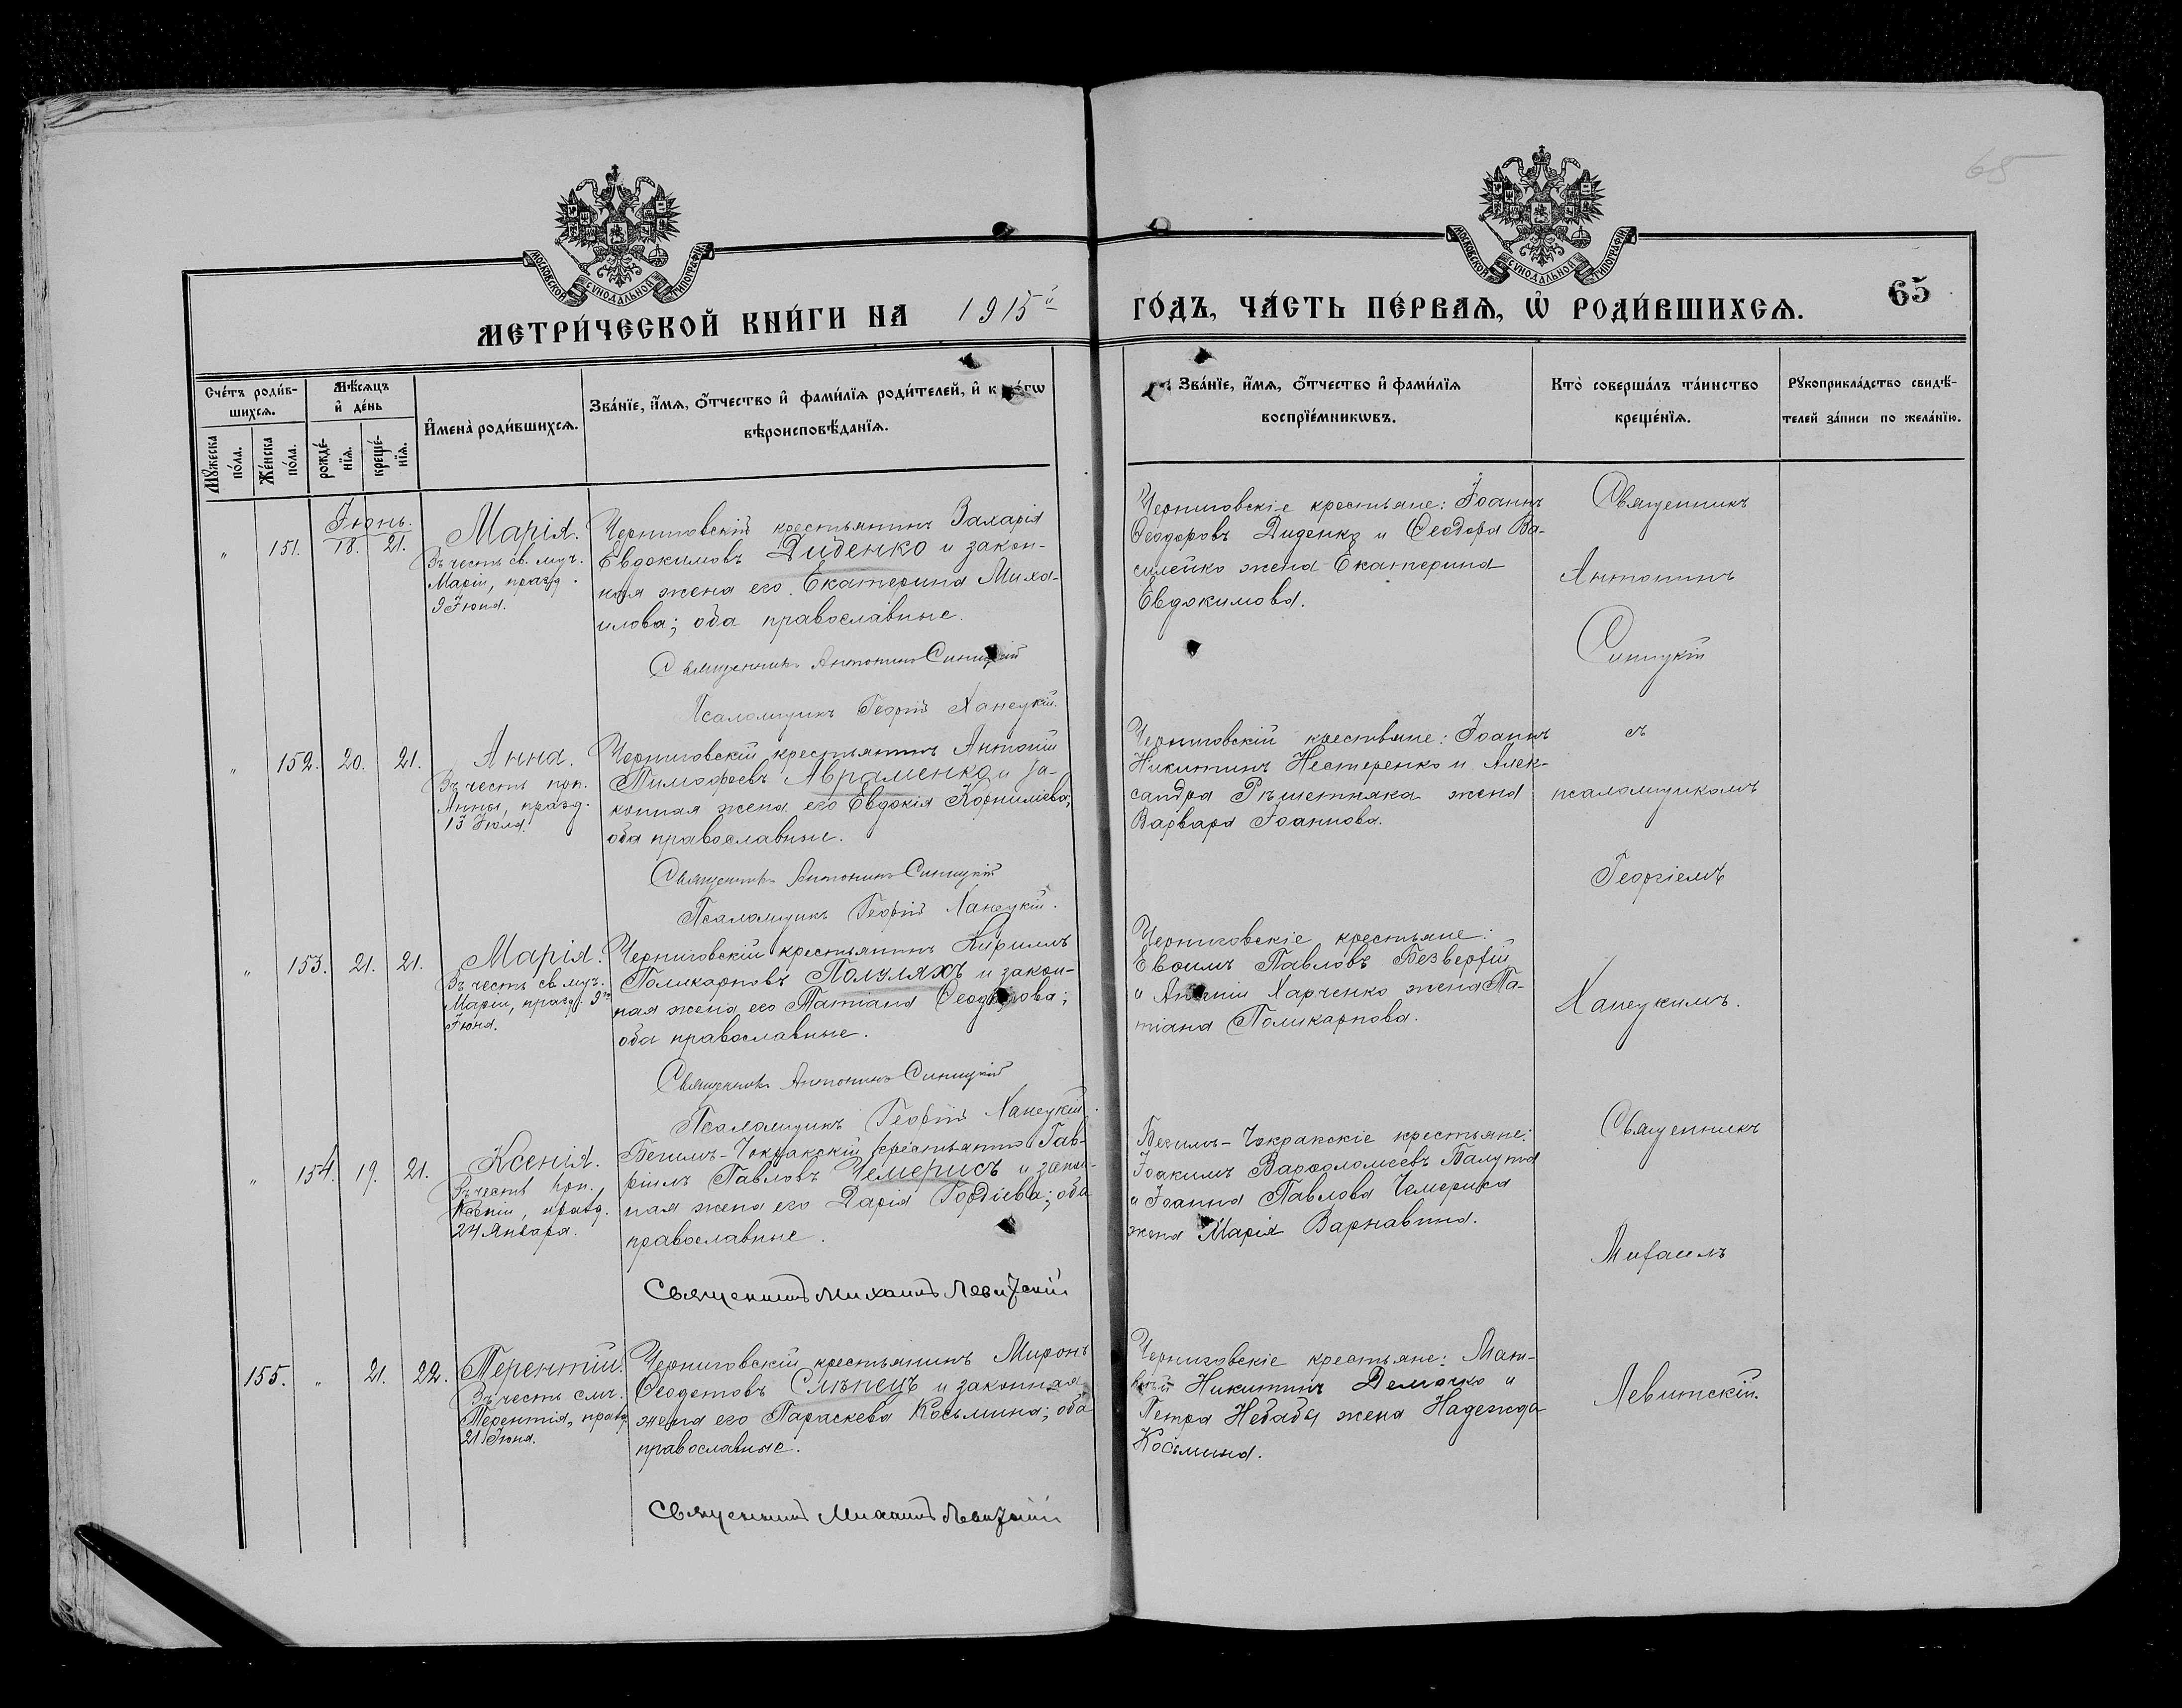 65
МОСКОВСКОЙ СѴНОДАЛЬНОЙ ТИПОГРАФІИ
МОСКОВСКОЙ СѴНОДАЛЬНОЙ ТИПОГРАФІИ
МЕТРИ́ЧЕСКОЙ КНИ́ГИ НА 1915й ГО́ДЪ, ЧА́СТЬ ПЕ́РВАѦ, Ѡ҆ РОДИ́ВШИХСѦ. 65
Сче́тъ роди́в-
шихсѧ.
Мꙋжеска по́ла.
Же́нска по́ла.
Мѣ́сѧцъ
и҆ де́нь
рожде́-
нїѧ.
креще́-
нїѧ.
И҆мена̀ роди́вшихсѧ.
Зва́нїе, и҆́мѧ, ѻ҆́тчество и҆ фами́лїѧ роди́телей, и҆
вѣроисповѣ́данїѧ.
Зва́нїе, и҆́мѧ, ѻ҆́тчество и҆ фами́лїѧ
воспрїе́мникѡвъ.
Кто̀ соверша́лъ та́инство
креще́нїѧ.
Рꙋкоприкла́дство свидѣ́-
телей за́писи по жела́нїю.
Іюнь.
" 151. 18. 21.
Марія.
Въ честь св. муч.
Маріи, празд.
9 Іюня.
Черниговскій крестьянинъ Захарія
Евдокимовъ Диденко и закон-
ная жена его Екатерина Миха-
илова; оба православные.
Священникъ Антонинъ Синицкій
Псаломщикъ Георгій Ханецкій.
Черниговскіе крестьяне: Іоаннъ
Ѳеодоровъ Диденко и Ѳеодора Ва-
силейко жена Екатерина
Евдокимова.
Священникъ
Антонинъ
Синицкій
" 152. 20. 21.
Анна.
Въ честь прп.
Анны, празд.
13 Іюня.
Черниговскій крестьянинъ Антоній
Тимоѳеевъ Авраменко и за-
конная жена его Евдокія Корниліева;
оба православные.
Священникъ Антонинъ Синицкій
Псаломщикъ Георгій Ханецкій.
Черниговскіи крестьяне: Іоаннъ
Никитинъ Нестеренко и Алек-
сандра Рѣшетняка жена
Варвара Іоаннова.
съ
псаломщикомъ
Георгіемъ
" 153. 21. 21.
Марія.
Въ честь св. муч.
Маріи, празд. 9го
Іюня.
Черниговскій крестьянинъ Кириллъ
Поликарповъ Полуляхъ и закон-
ная жена его Татіана
оба православные.
Священникъ Антонинъ Синицкій
Псаломщикъ Георгій Ханецкій.
Черниговскіе крестьяне:
Евѳимъ Павловъ Безверхій
и Харченко жена Та-
тіана Поликарпова.
Ханецкимъ.
" 154. 19. 21.
Ксенія.
Въ честь прп.
Ксеніи, празд.
24 Января.
Бегимъ-Чокракскій крестьянинъ Гав-
ріилъ Павловъ Чемерисъ и закон-
ная жена его Дарія Гордіева; оба
православные.
Священникъ Михаилъ Левитскій
Бегимъ-Чокракскіе крестьяне:
Іоакимъ Варѳоломеевъ
и Іоанна Павлова Чемериса
жена Марія Варнавина.
Священникъ
Михаилъ
155. " 21. 22.
Терентій.
Въ честь смч.
Терентія, празд.
21 Іюня.
Черниговскій крестьянинъ Миронъ
Ѳеодотовъ Слѣпецъ и законная
жена его Параскева Косьмина; оба
православные.
Священникъ Михаилъ Левитскій
Черниговскіе крестьяне: Мат-
ѳей Никитинъ Демочко и
Петра Небабы жена Надежда
Косьмина.
Левитскій.